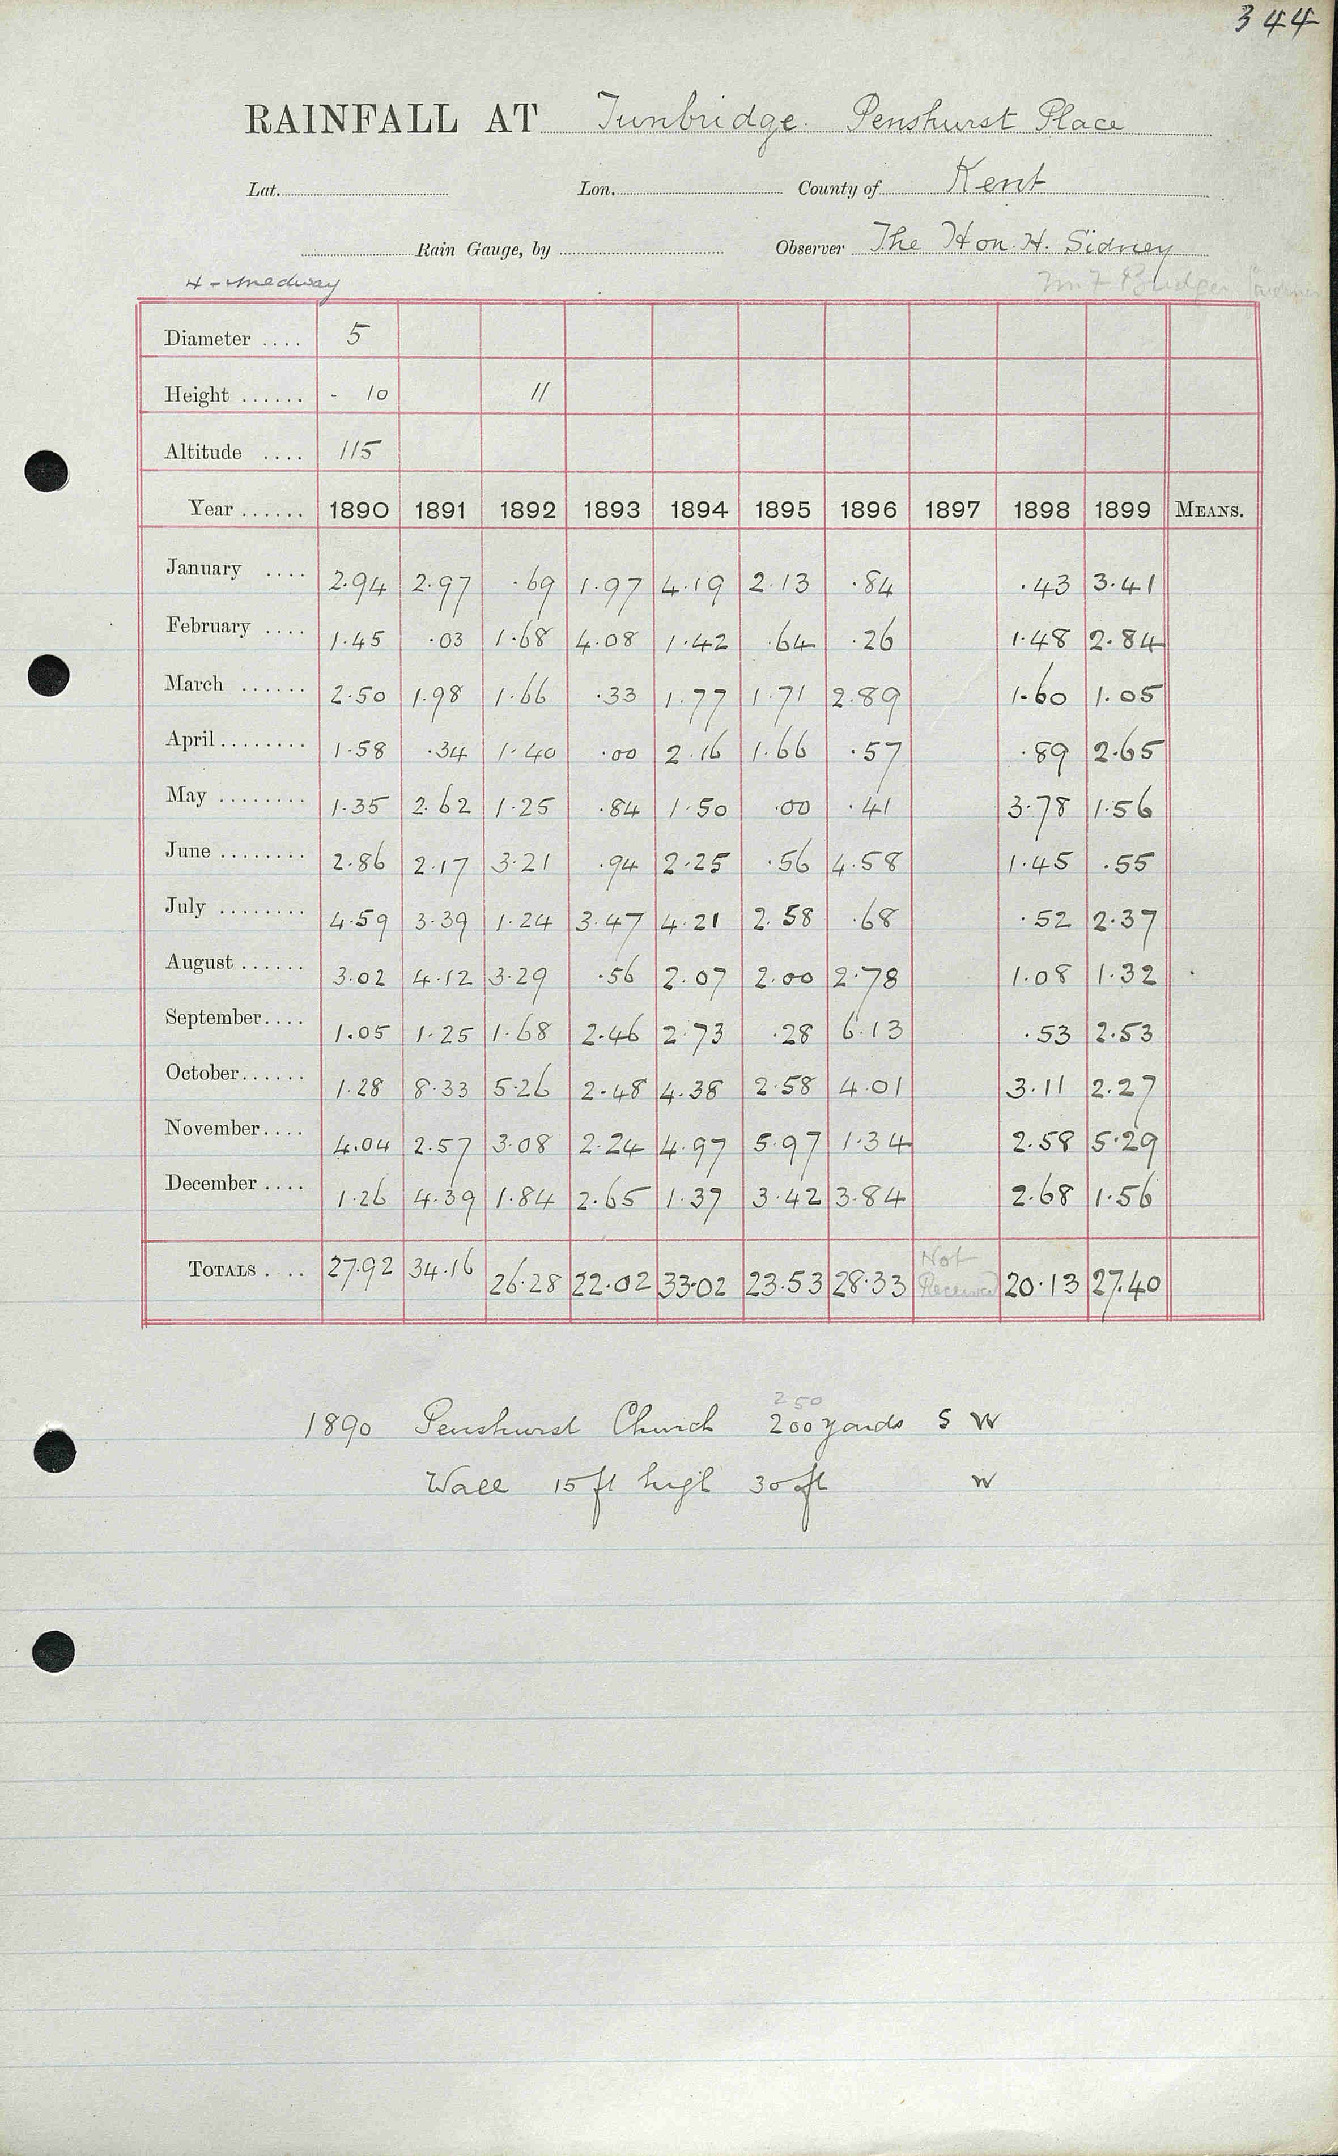 344
RAINFALL AT Tunbridge. Penshurst Place
Lat. Lon. County of Kent
Rain Gauge, by Observer The Hon. H. Sidney
4 - Medway
Diameter .... 5
Height ...... - 10 11
Altitude .... 115
Year ...... 1890 1891 1892 1893 1894 1895 1896 1897 1898 1899 MEANS.
January .... 2.94 2.97 .69 1.97 4.19 2.13 .84 .43 3.41
February .... 1.45 .03 1.68 4.08 1.42 .64 .26 1.48 2.84
March ...... 2.50 1.98 1.66 .33 1.77 1.71 2.89 1.60 1.05
April ........ 1.58 .34 1.40 .00 2.16 1.66 .57 .89 2.65
May ........ 1.35 2.62 1.25 .84 1.50 .00 .41 3.78 1.56
June ........ 2.86 2.17 3.21 .94 2.25 .56 4.58 1.45 .55
July ........ 4.59 3.39 1.24 3.47 4.21 2.58 .68 .52 2.37
August ...... 3.02 4.12 3.29 .56 2.07 2.00 2.78 1.08 1.32
September.... 1.05 1.25 1.68 2.46 2.73 .28 6.13 .53 2.53
October...... 1.28 8.33 5.26 2.48 4.38 2.58 4.01 3.11 2.27
November.... 4.04 2.57 3.08 2.24 4.97 5.97 1.34 2.58 5.29
December .... 1.26 4.39 1.84 2.65 1.37 3.42 3.84 2.68 1.56
TOTALS .... 27.92 34.16 26.28 22.02 33.02 23.53 28.33 Not Received 20.13 27.40
250
1890 Penshurst Church 200 yards S W
Wall 15 ft high 30 ft W